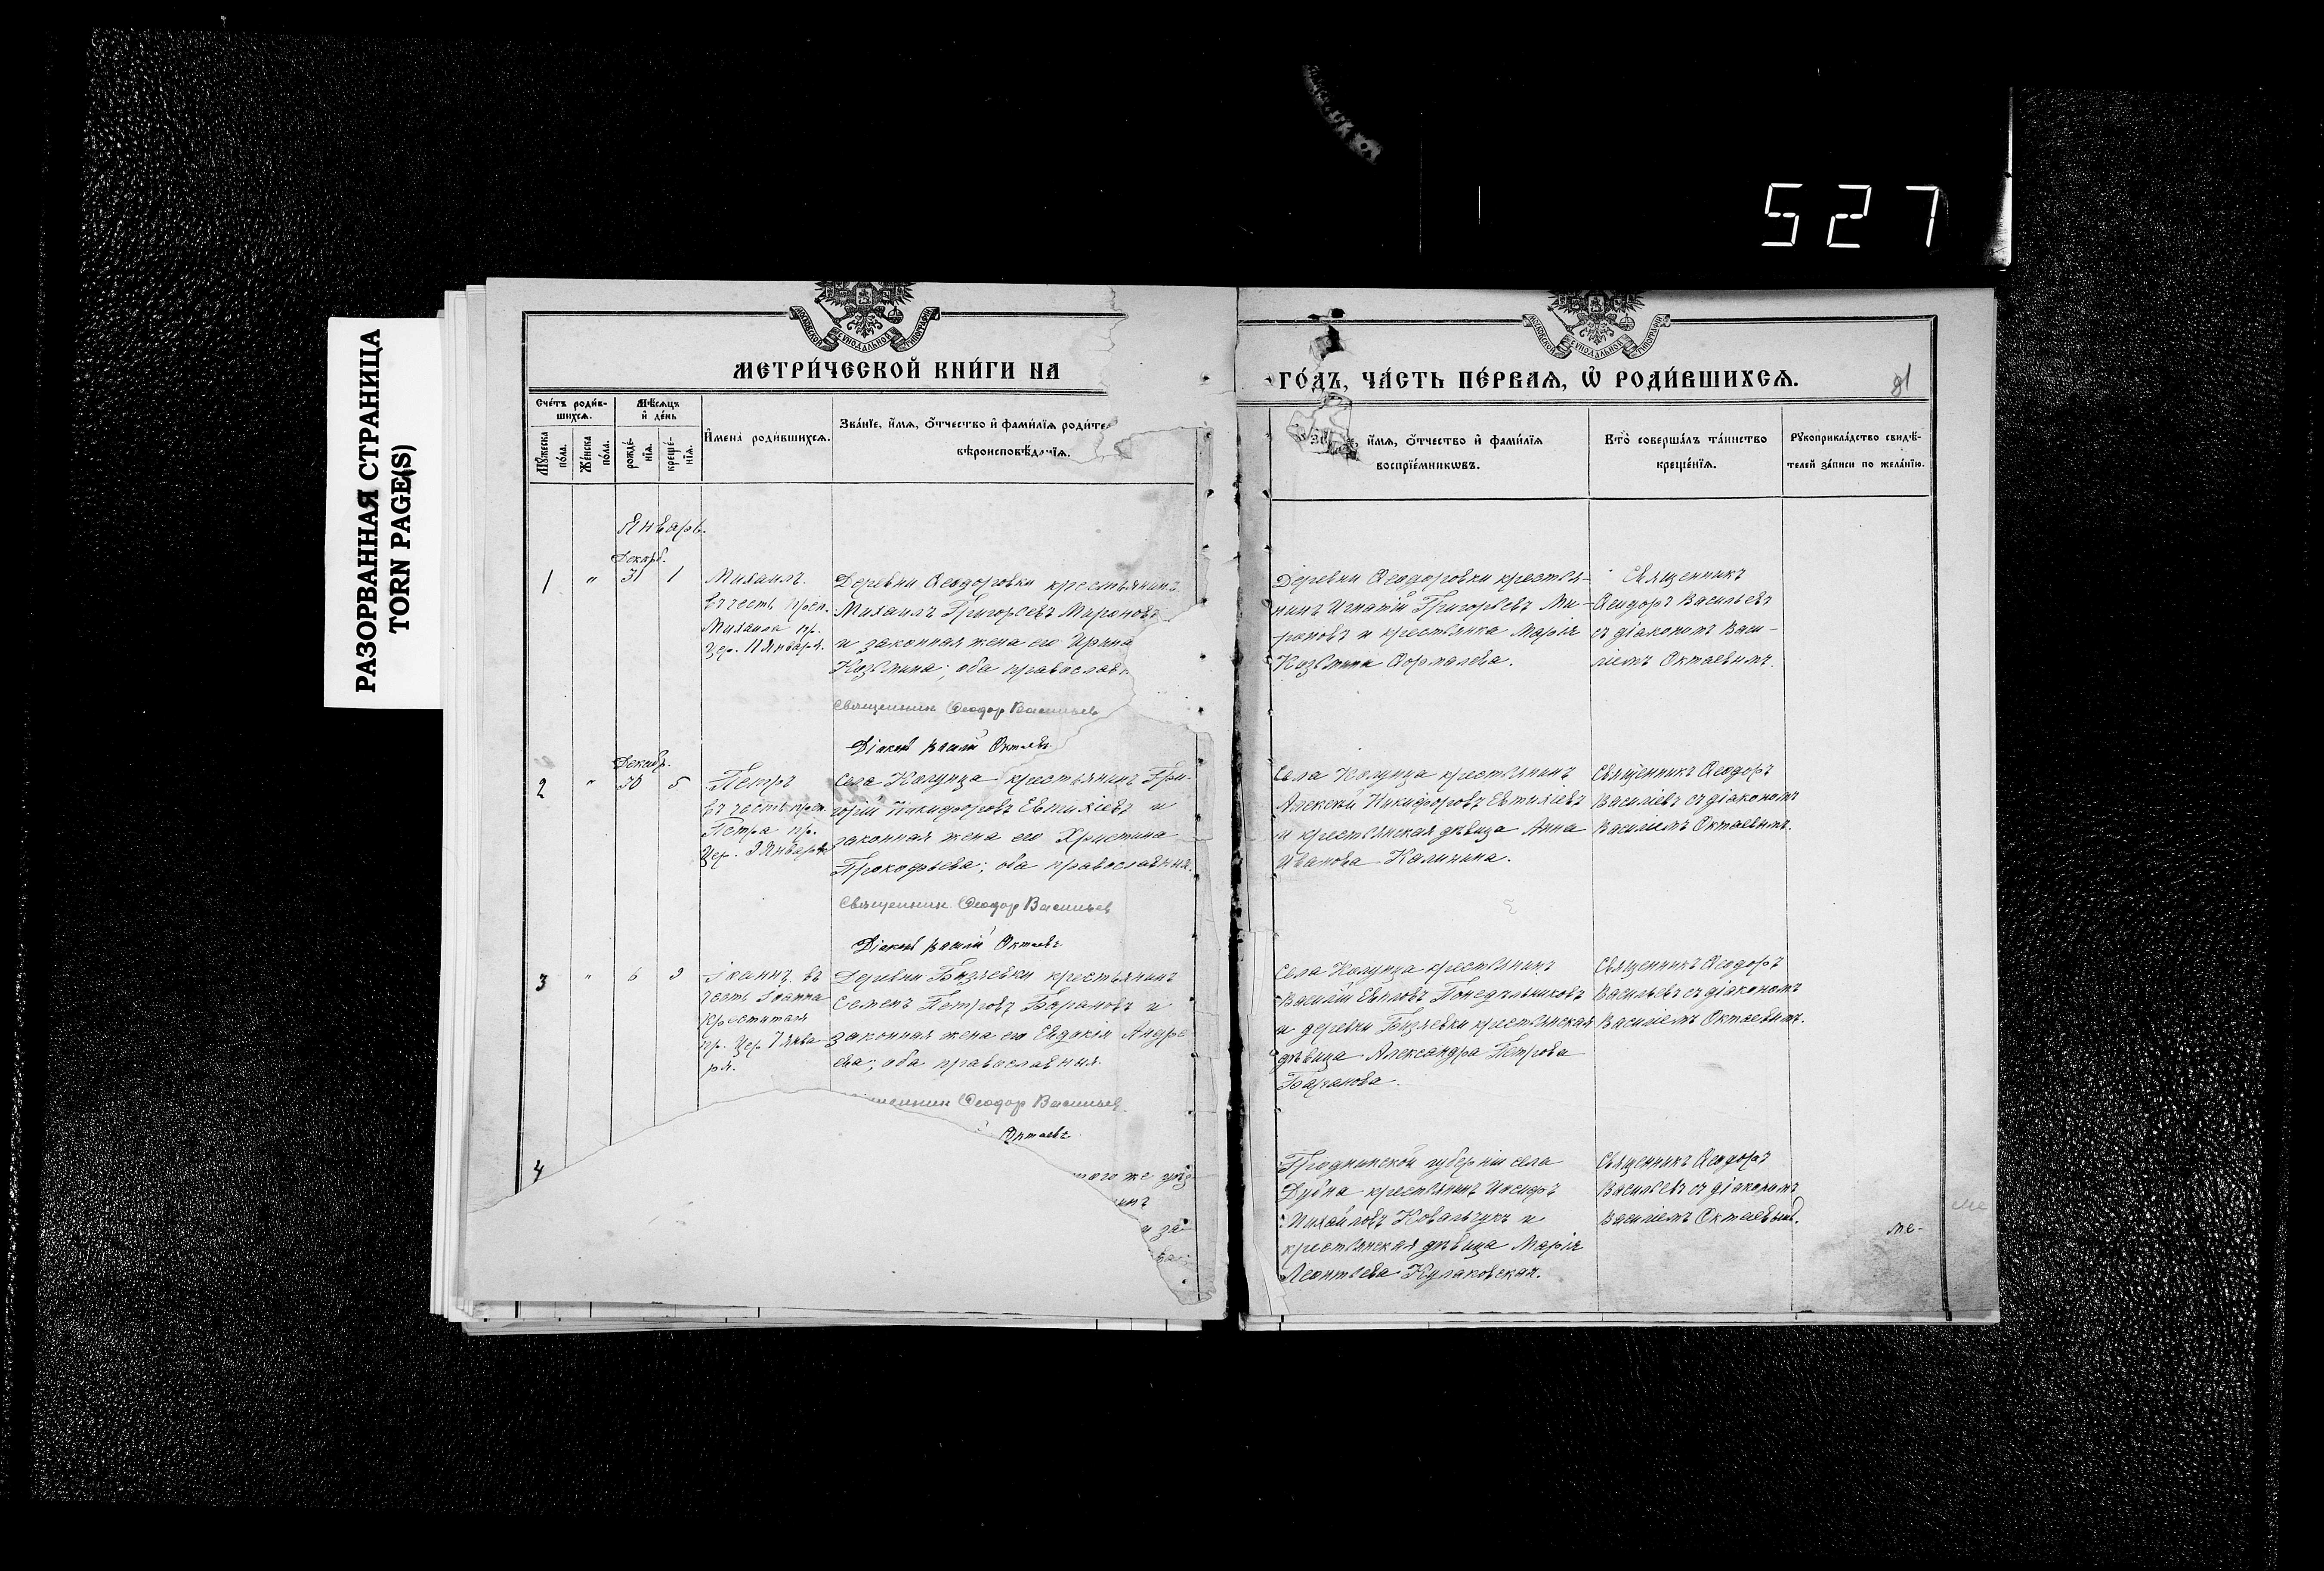 527
РАЗОРВАННАЯ СТРАНИЦА
TORN PAGE(S)
МОСКОВСКОЙ СѴНОДАЛЬНОЙ ТИПОГРАФІИ
МЕТРИ́ЧЕСКОЙ КНИ́ГИ НА
Сче́тъ роди́в-
шихсѧ.
Мѣ́сѧцъ
и҆ де́нь
Мꙋ́жеска
по́ла.
Же́нска
по́ла.
рожде́-
нїѧ.
креще́-
нїѧ.
И҆мена̀ роди́вшихсѧ.
Зва́нїе, и҆́мѧ, ѻ҆́тчество и҆ фами́лїѧ роди́те
вѣроисповѣ́данїѧ.
Январь.
Декабр.
1 " 31 1
Михаилъ.
въ честь преп.
Михаила пр.
цер. 11 Января.
Деревни Ѳеодоровки крестьянинъ
Михаилъ Григорьевъ Мироновъ
и законная жена его Ирина
Козьмина; оба православн
Священник Ѳеодор Васильев
Діаконъ Василій Октаевъ
Декабр.
2 " 30 5
Петръ
въ честь преп.
Петра пр.
Цер. 9 Января
Села Колунца крестьянинъ Гри-
горій Никифоровъ Евтихіевъ и
законная жена его Христина
Прокофьева; оба православныя.
Священник Ѳеодор Васильев
Діаконъ Василій Октаевъ
3 " 6 9
Іоаннъ въ
честь Іоанна
Крестителя
пр. Цер. 7 Янва
ря.
Деревни Бизяевки крестьянинъ
Семенъ Петровъ Барановъ и
законная жена его Евдокія Андре
ева; оба православныя.
щенник Ѳеодор Васильев.
Октаевъ
4
того же уѣз
инъ
и за-
МОСКОВСКОЙ СѴНОДАЛЬНОЙ ТИПОГРАФІИ
ГО́ДЪ, ЧА́СТЬ ПЕ́РВАѦ, Ѽ РОДИ́ВШИХСѦ.
и҆́мѧ, ѻ҆́тчество и҆ фами́лїѧ
воспрїе́мникѡвъ.
Кто̀ соверша́лъ та́инство
креще́нїѧ.
Рꙋкоприкла́дство свидѣ́-
телей за́писи по жела́нїю.
Деревни Ѳеодоровки крестья-
нинъ Игнатій Григорьевъ Ми-
роновъ и крестьянка Марія
Козьмина
Священникъ
Ѳеодоръ Васильевъ
съ діакономъ Васи-
ліемъ Октаевымъ.
Села Колунца крестьянинъ
Алексѣй Никифоровъ Евтихіевъ
и крестьянская дѣвица Анна
Иванова Калинина.
Священникъ Ѳеодоръ
Васильевъ съ діакономъ
Василіемъ Октаевымъ.
Села Колунца крестьянинъ
Василій Понедѣльниковъ
и деревни Бизяевки крестьянская
дѣвица Александра Петрова
Баранова.
Священникъ Ѳеодоръ
Васильевъ съ діакономъ
Василіемъ Октаевымъ.
Гродненской губерніи села
Дубна крестьянинъ Иосифъ
Михайловъ Ковальчукъ и
крестьянская дѣвица Марія
Леонтьева Кулаковская.
Священникъ Ѳеодоръ
Васильевъ съ діакономъ
Василіемъ Октаевымъ.
ме-